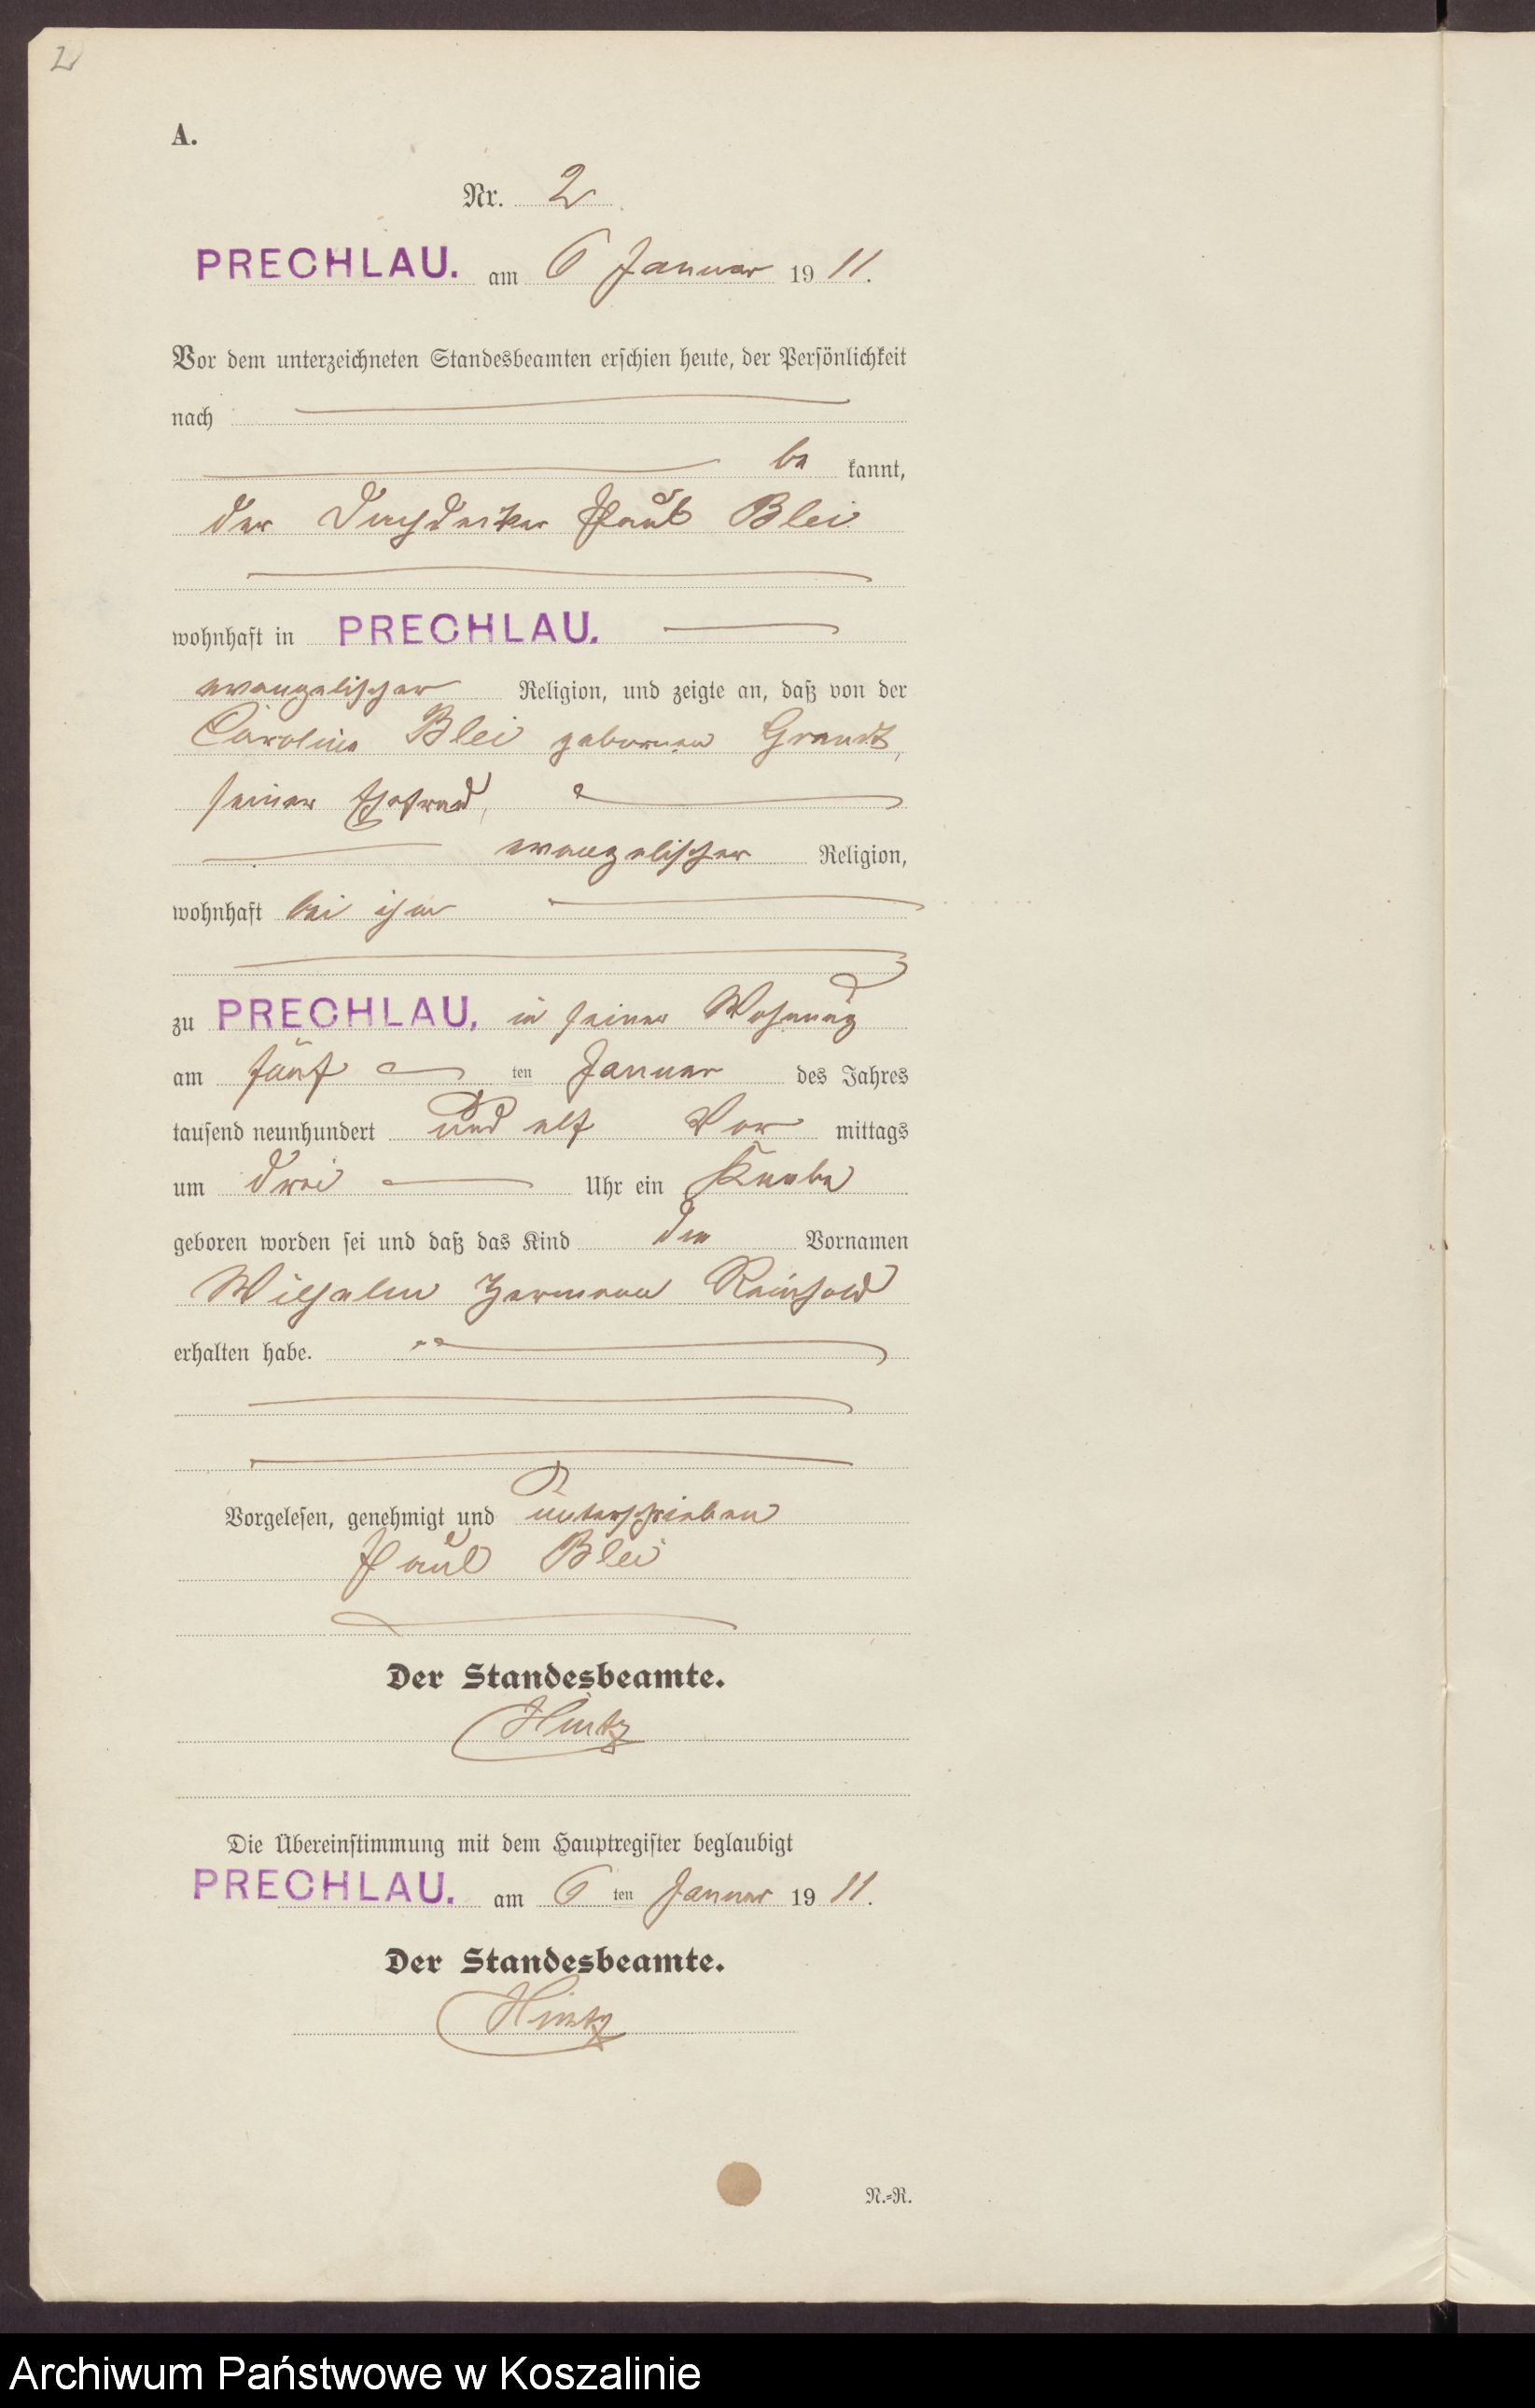 2
A.
Nr. 2
PRECHLAU. am 6 Januar 1911.
Vor dem unterzeichneten Standesbeamten erschien heute, der Persönlichkeit
nach
be kannt,
der Dachdecker Paul Blei
wohnhaft in PRECHLAU.
evangelischer Religion, und zeigte an, daß von der
Caroline Blei gebornen Grandt,
seiner Ehefrau,
evangelischer Religion,
wohnhaft bei ihm
zu PRECHLAU, in seiner Wohnung
am fünf ten Januar des Jahres
tausend neunhundert und elf Vor mittags
um drei Uhr ein Knabe
geboren worden sei und daß das Kind den Vornamen
Wilhelm Hermann Reinhold
erhalten habe.
Vorgelesen, genehmigt und unterschrieben
Paul Blei
Der Standesbeamte.
Hintz
Die Übereinstimmung mit dem Hauptregister beglaubigt
PRECHLAU. am 6 ten Januar 1911.
Der Standesbeamte.
Hintz
N.=R.
Archiwum Państwowe w Koszalinie